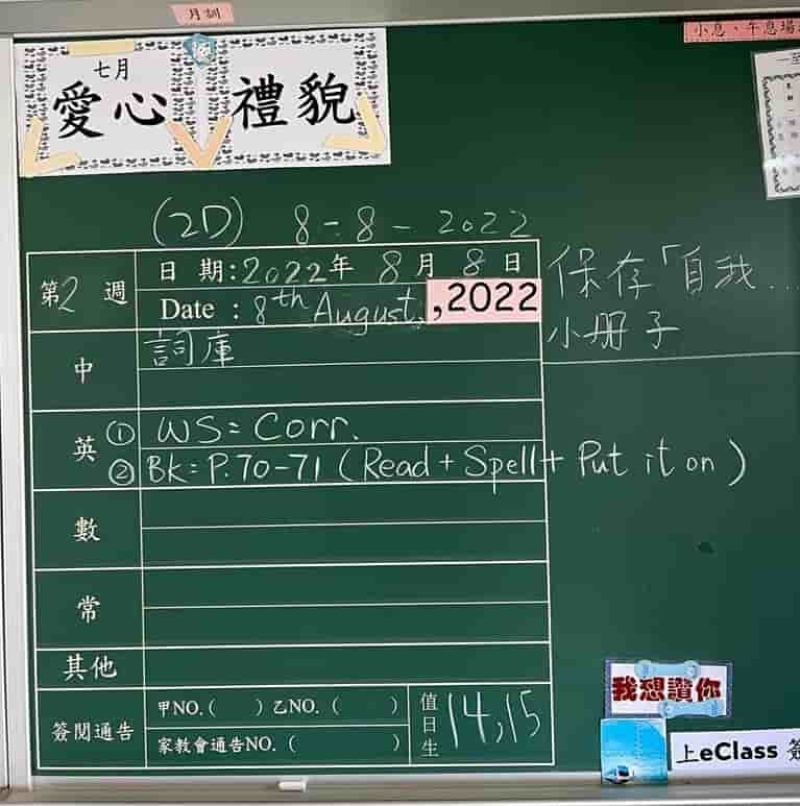 月訓
小息、午息場
七月
愛心 禮貌
(2D) 8-8-2022
第2週
日期:2022年8月8日
Date : 8th August, ,2022
保存「自我...
小冊子
中
詞庫
英
① WS= Corr.
② BK: P.70-71 (Read + Spell + Put it on)
數
常
其他
簽閱通告
甲NO.( ) 乙NO.( )
家教會通告NO.( )
值日生
14,15
我想讚你
上eClass